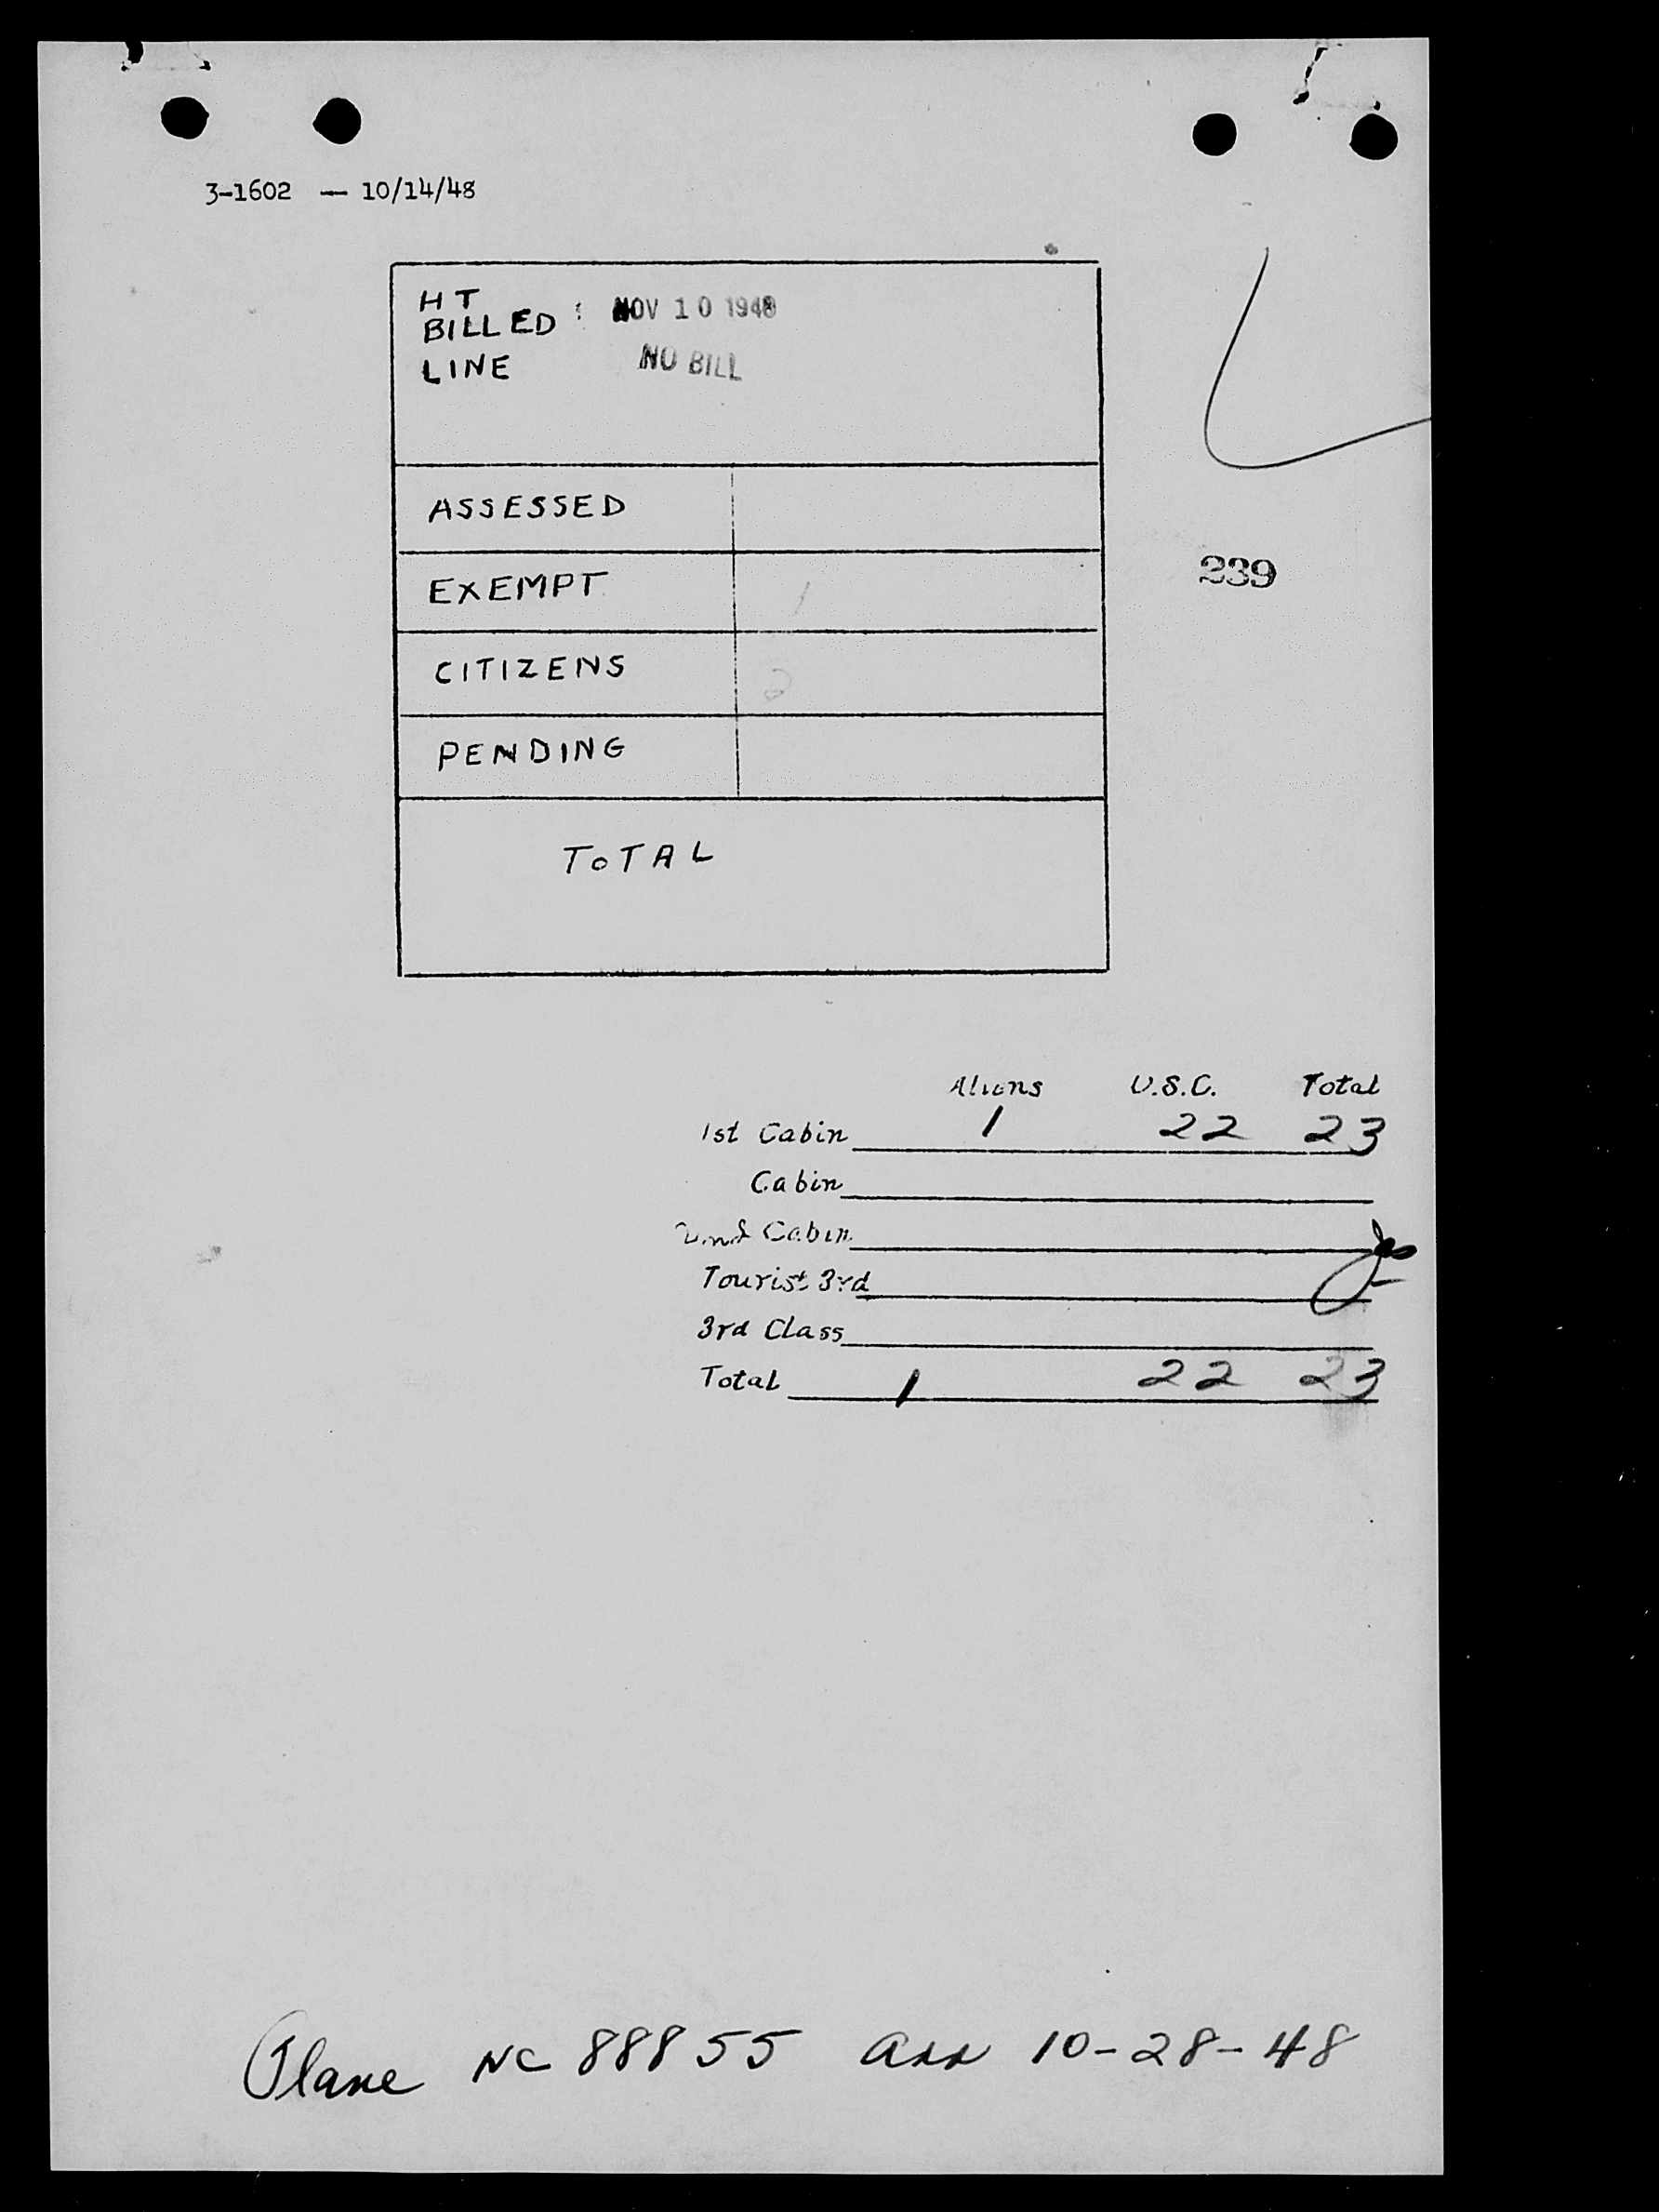 3-1602 — 10/14/48
HT
BILLED : NOV 10 1948
LINE NO BILL
ASSESSED
EXEMPT 1
CITIZENS 2
PENDING
TOTAL
239
Aliens U.S.C. Total
1st Cabin 1 22 23
Cabin
2nd Cabin
Tourist 3rd
3rd Class
Total 1 22 23
Plane NC 88855 arr 10-28-48